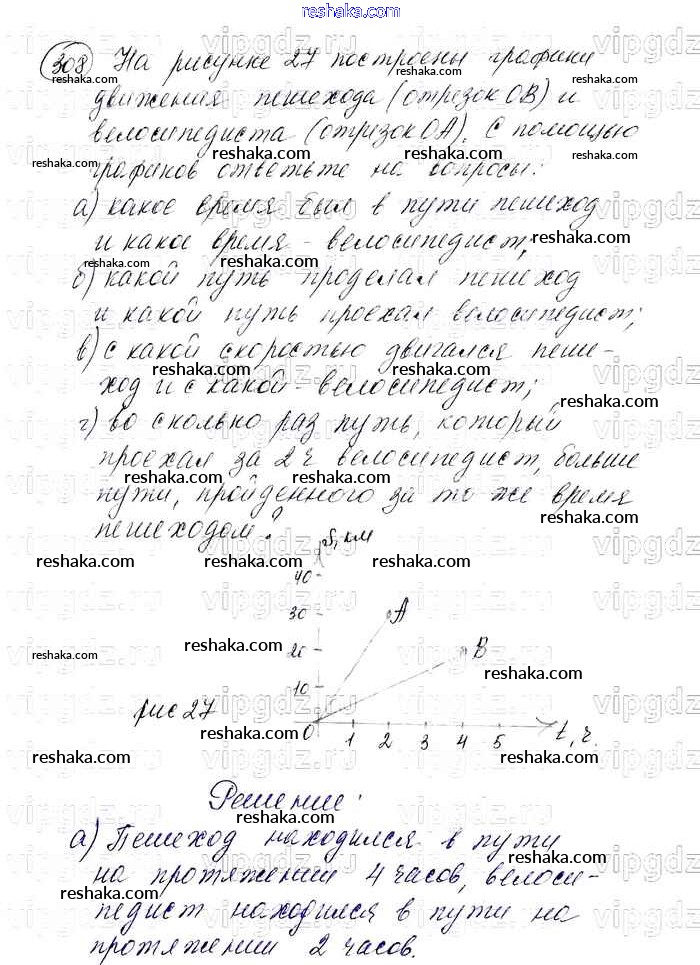 reshaka.com
308 На рисунке 27 построены графики
движения пешехода (отрезок ОВ) и
велосипедиста (отрезок ОА). С помощью
графиков ответьте на вопросы:
а) какое время был в пути пешеход
и какое время - велосипедист;
б) какой путь проделал пешеход
и какой путь проехал велосипедист;
в) с какой скоростью двигался пеше-
ход и с какой - велосипедист;
г) во сколько раз путь, который
проехал за 2ч велосипедист, больше
пути, пройденного за то же время
пешеходом?
S, км
40
30 А
20 В
10
рис 27
О 1 2 3 4 5 t, ч.
Решение:
а) Пешеход находился в пути
на протяжении 4 часов, велоси-
педист находился в пути на
протяжении 2 часов.